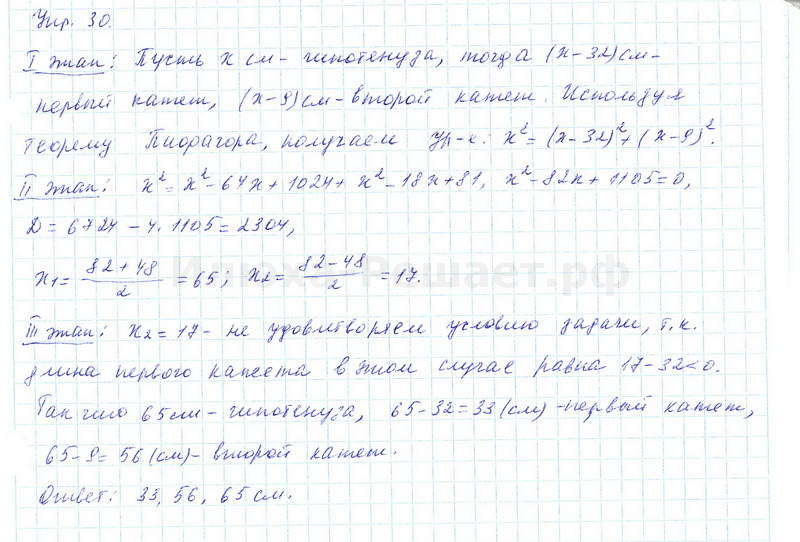 Упр. 30.
I этап: Пусть x см - гипотенуза, тогда (x-32) см -
первый катет, (x-9) см - второй катет. Используя
теорему Пифагора, получаем ур-е: x²=(x-32)²+(x-9)².
II этап: x²=x²-64x+1024+x²-18x+81, x²-82x+1105=0,
D=6724-4·1105=2304,
x₁=(82+48)/2=65; x₂=(82-48)/2=17.
III этап: x₂=17 - не удовлетворяет условию задачи, т.к.
длина первого катета в этом случае равна 17-32<0.
Так что 65 см - гипотенуза, 65-32=33 (см) - первый катет,
65-9=56 (см) - второй катет.
Ответ: 33, 56, 65 см.
ИлюхаРешает.рф